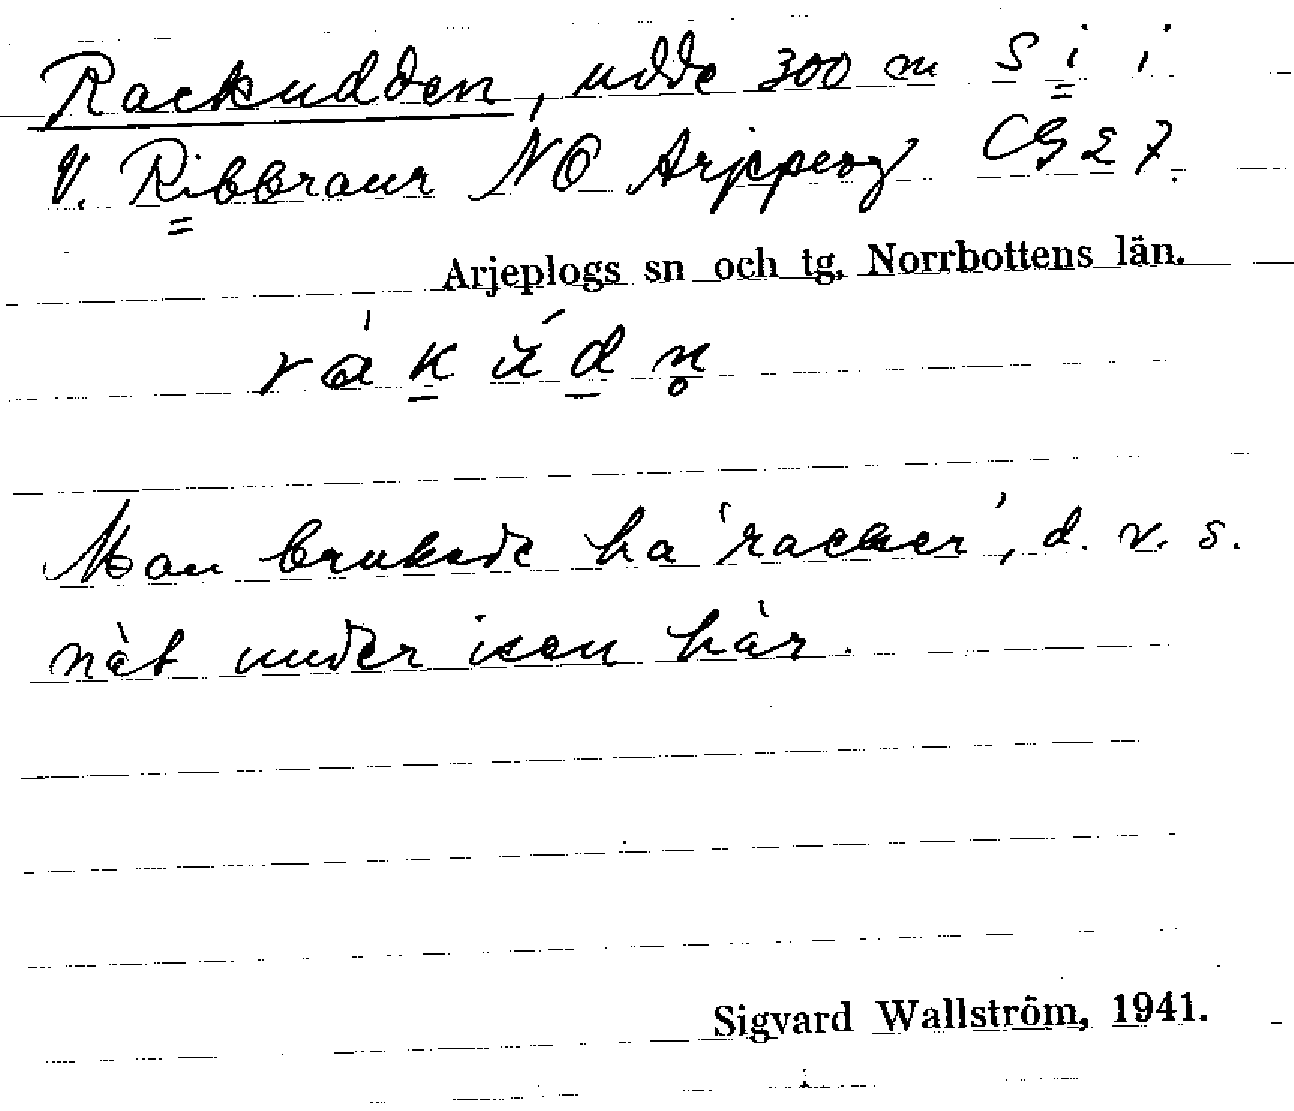 Rackudden, udde 300 m S i i
V. Ribbraur NO Arjepog CG 27.
Arjeplogs sn och tg, Norrbottens län.
ràkúdn̥
Man brukade ha 'racker', d. v. s.
nät under isen här.
Sigvard Wallström, 1941.